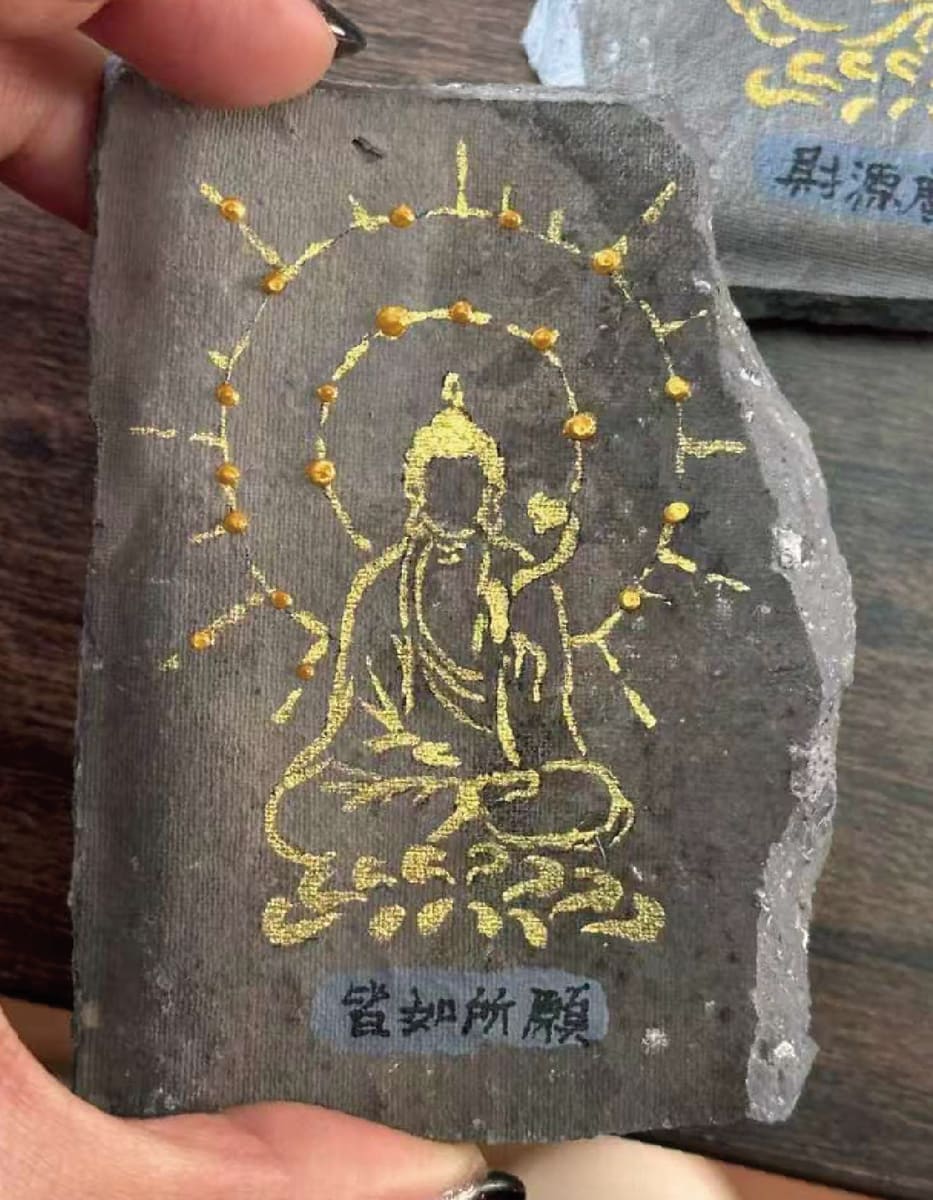 財源
皆如所願